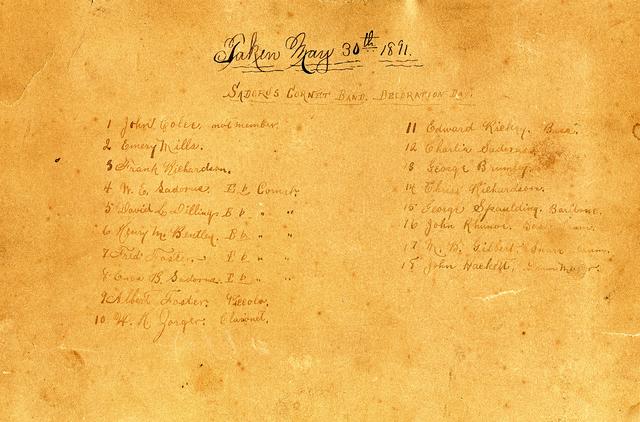 Taken May 30th 1891.
Sadorus Cornet Band. Decoration Day.
1 John Coles. not member.
2 Emery Mills.
3 Frank Richardson.
4 W. E. Sadorus. E b Cornet.
5 David L. Dillings B b " "
6 Henry M. Bentley. B b " "
7 Fred Foster. " "
8 B. Sadorus. " "
9 Albert Foster. Piccolo.
10 H. K Clarinet.
11 Edward Bass.
12 Charlie Sadorus
13 George
14 Chriss Richardson.
15 George Spaulding. Baritone.
16 John
17 Gilbert. Snare Drum.
18 John Hackett. Drum Major.